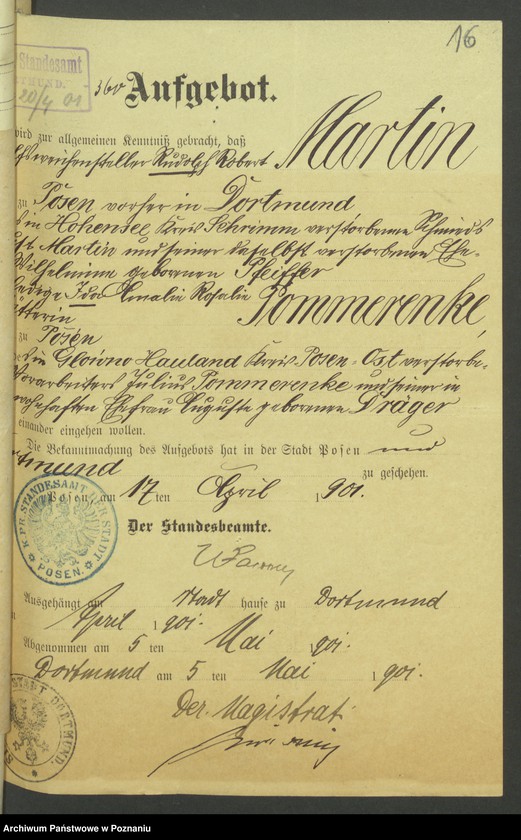 16
Standesamt
DORTMUND.
20/4 01
360
Aufgebot.
wird zur allgemeinen Kenntniß gebracht, daß
weichensteller Rudolph Robert Martin
zu Posen vorher in Dortmund
in Hohensee Kreis Schrimm verstorbenen Schmieds
Martin und seiner daselbst verstorbenen Ehe-
Wilhelmine geborenen Pfeiffer
Ida Amalie Rosalie Pommerenke,
zu Posen
in Glowno Hauland Kreis Posen-Ost verstorbe-
Vorarbeiters Julius Pommerenke und seiner in
wohnhaften Ehefrau Auguste geborenen Dräger
einander eingehen wollen.
Die Bekanntmachung des Aufgebots hat in der Stadt Posen und
Dortmund zu geschehen.
Posen am 17 ten April 1901.
K. PR. STANDESAMT DER STADT POSEN.
Der Standesbeamte.
Ausgehängt am Stadt hause zu Dortmund
April 1901.
Abgenommen am 5 ten Mai 1901.
Dortmund am 5 ten Mai 1901.
DORTMUND.
Der Magistrat
Archiwum Państwowe w Poznaniu